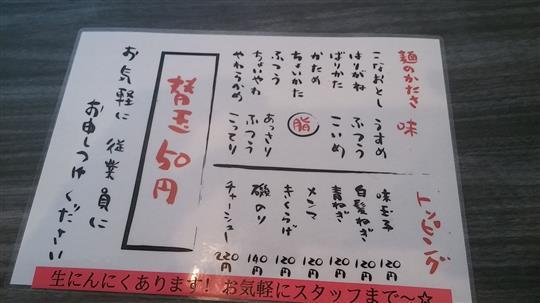 麺のかたさ
こなおとし
はりがね
ばりかた
かため
ちょいかた
ふつう
ちょいやわ
やわうかめ
味
うすめ
ふつう
こいめ
脂
あっさり
ふつう
こってり
トッピング
味玉子 120円
白髪ねぎ 120円
青ねぎ 120円
メンマ 120円
きくらげ 120円
磯のり 140円
チャーシュー 220円
替玉50円
お気軽に従業員に
お申しつけください
生にんにくあります! お気軽にスタッフまで〜☆